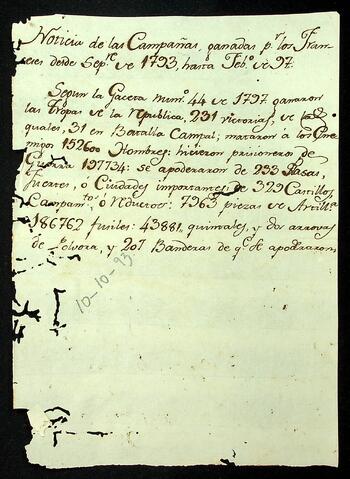 Noticia de las Campañas, ganadas pr. los Fran-
ceses desde Sepre. de 1793, hasta Febo. de 97.
Segun la Gaceta num.o 44 de 1797 ganaron
las tropas de la republica, 231 Victorias, de las
quales, 31 en Batalla Campal; mataron a los Ene-
migos 152600 Hombres: hicieron prisioneros de
Guerra 197734: se apoderaron de 233 Plasas,
fuertes, ó Ciudades importantes, de 329 Castillos
Campamtos. ó Reductos: 7963 piezas de Artilla.
186762 fusiles: 43881, quintales, y dos arrovas
de Polvora, y 207 Banderas de qe. se apoderaron
10-10-93